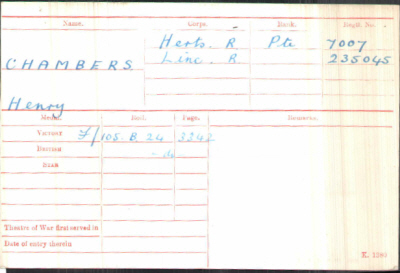 Name. Corps. Rank. Regtl. No.
Herts. R Pte 7007
CHAMBERS Linc. R 235045
Henry
Medal. Roll. Page. Remarks.
VICTORY F/105. B. 24 3242
BRITISH - do -
STAR
Theatre of War first served in
Date of entry therein
K. 1380